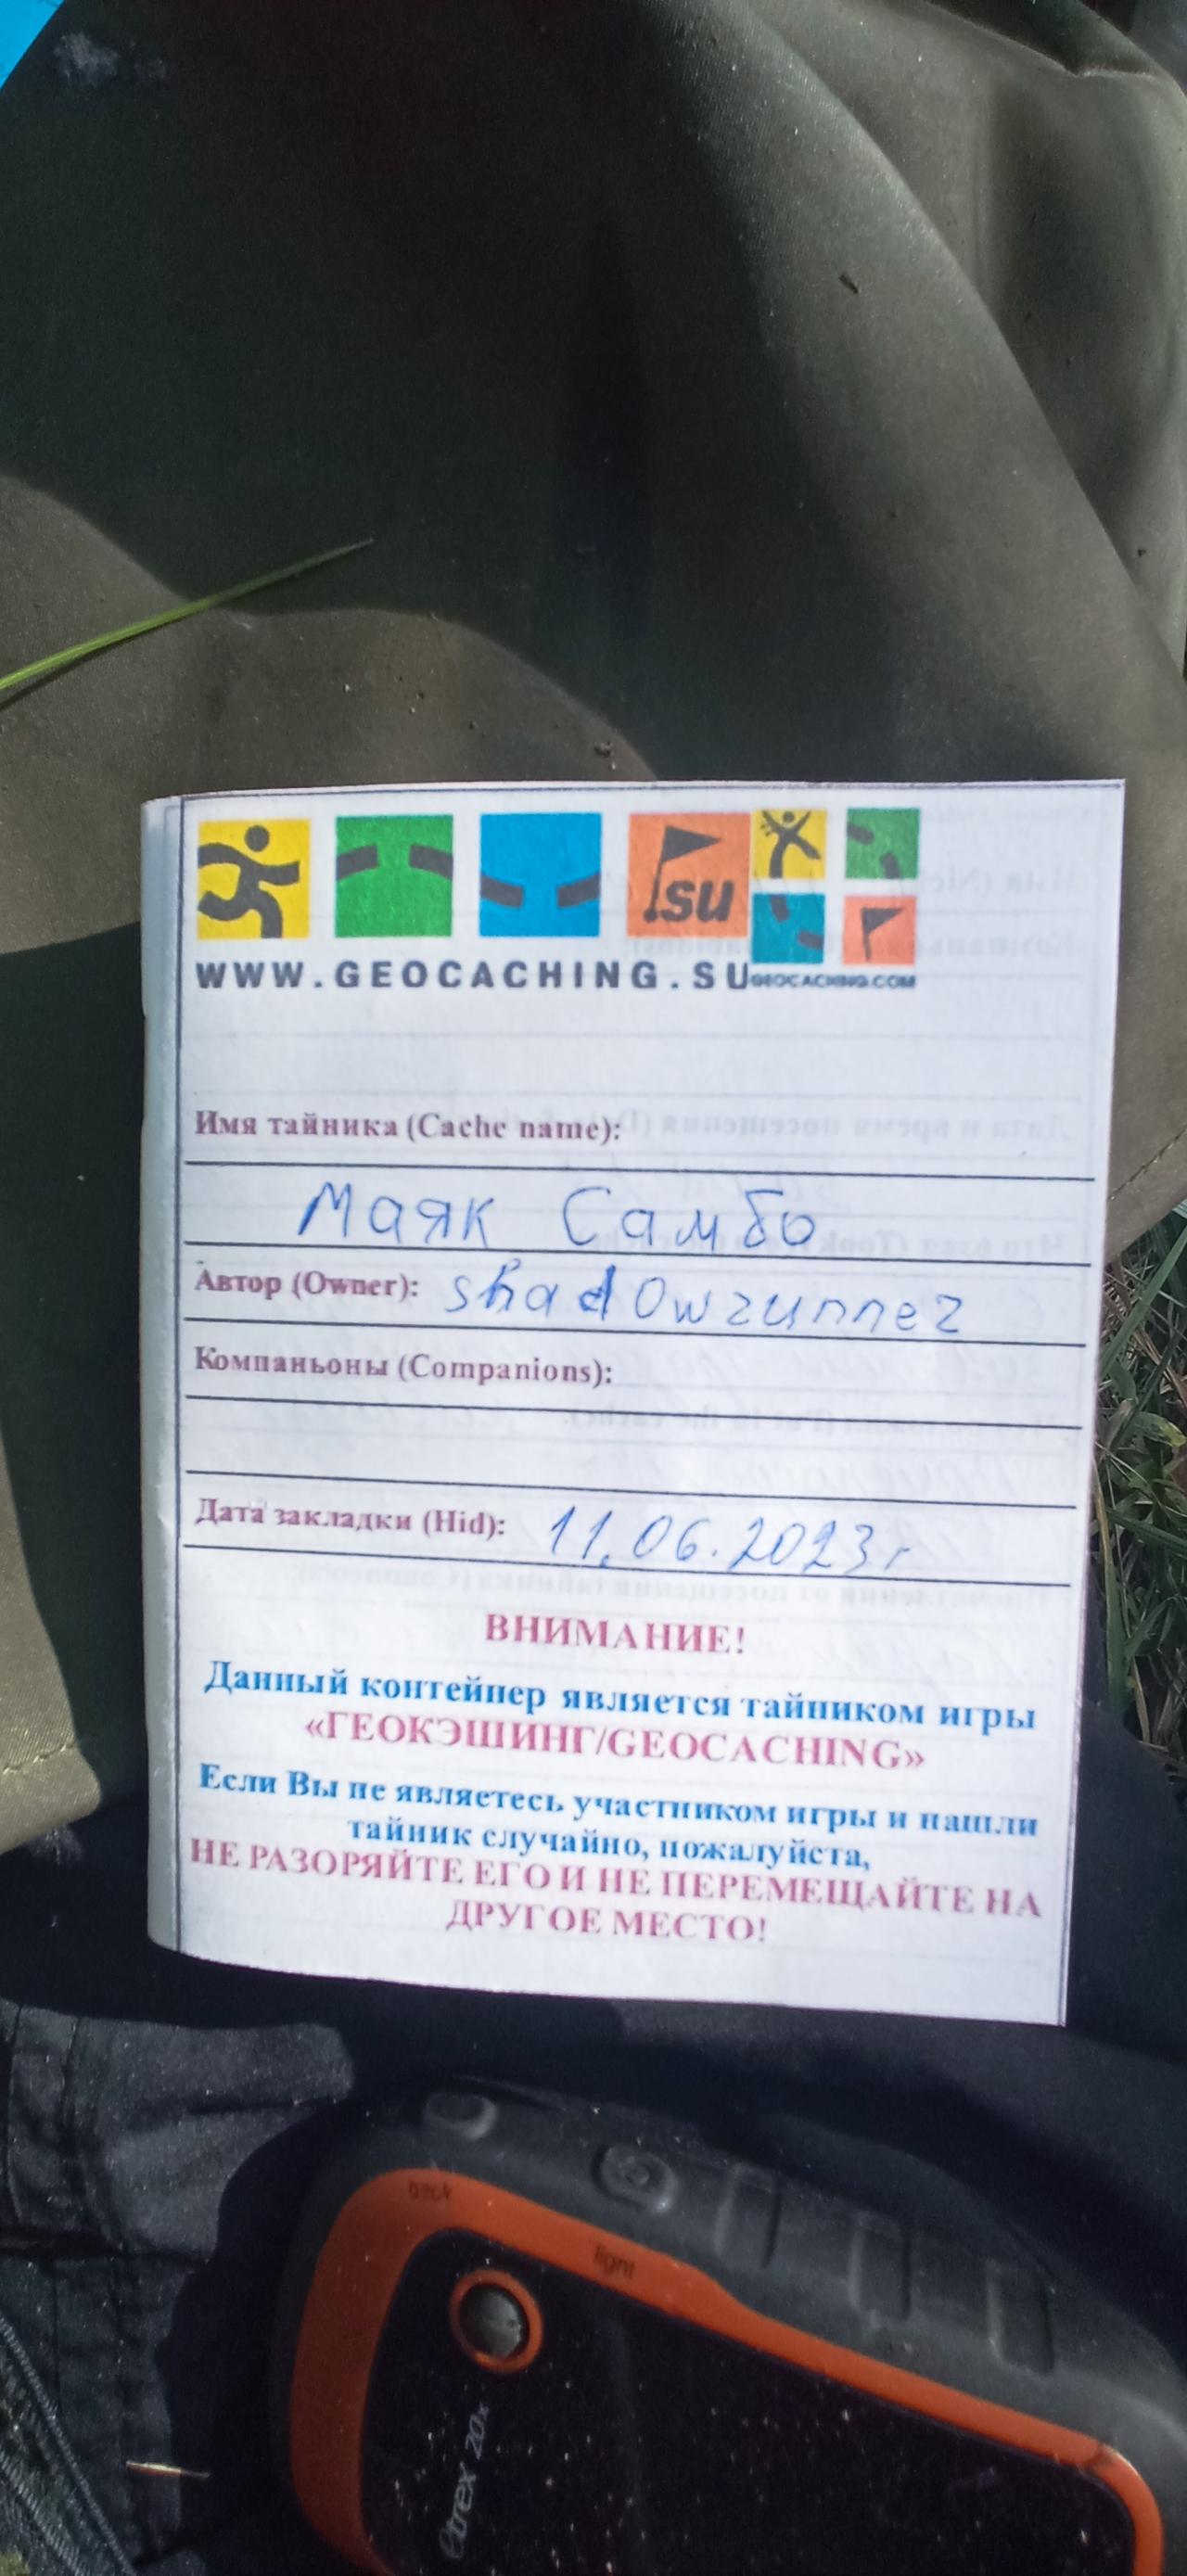 su
WWW.GEOCACHING.SU
GEOCACHING.COM
Имя тайника (Cache name):
Маяк Самбо
Автор (Owner): shadowrunner
Компаньоны (Companions):
Дата закладки (Hid): 11.06.2023г
ВНИМАНИЕ!
Данный контейнер является тайником игры
«ГЕОКЭШИНГ/GEOCACHING»
Если Вы не являетесь участником игры и нашли
тайник случайно, пожалуйста,
НЕ РАЗОРЯЙТЕ ЕГО И НЕ ПЕРЕМЕЩАЙТЕ НА
ДРУГОЕ МЕСТО!
back
light
eTrex 20x